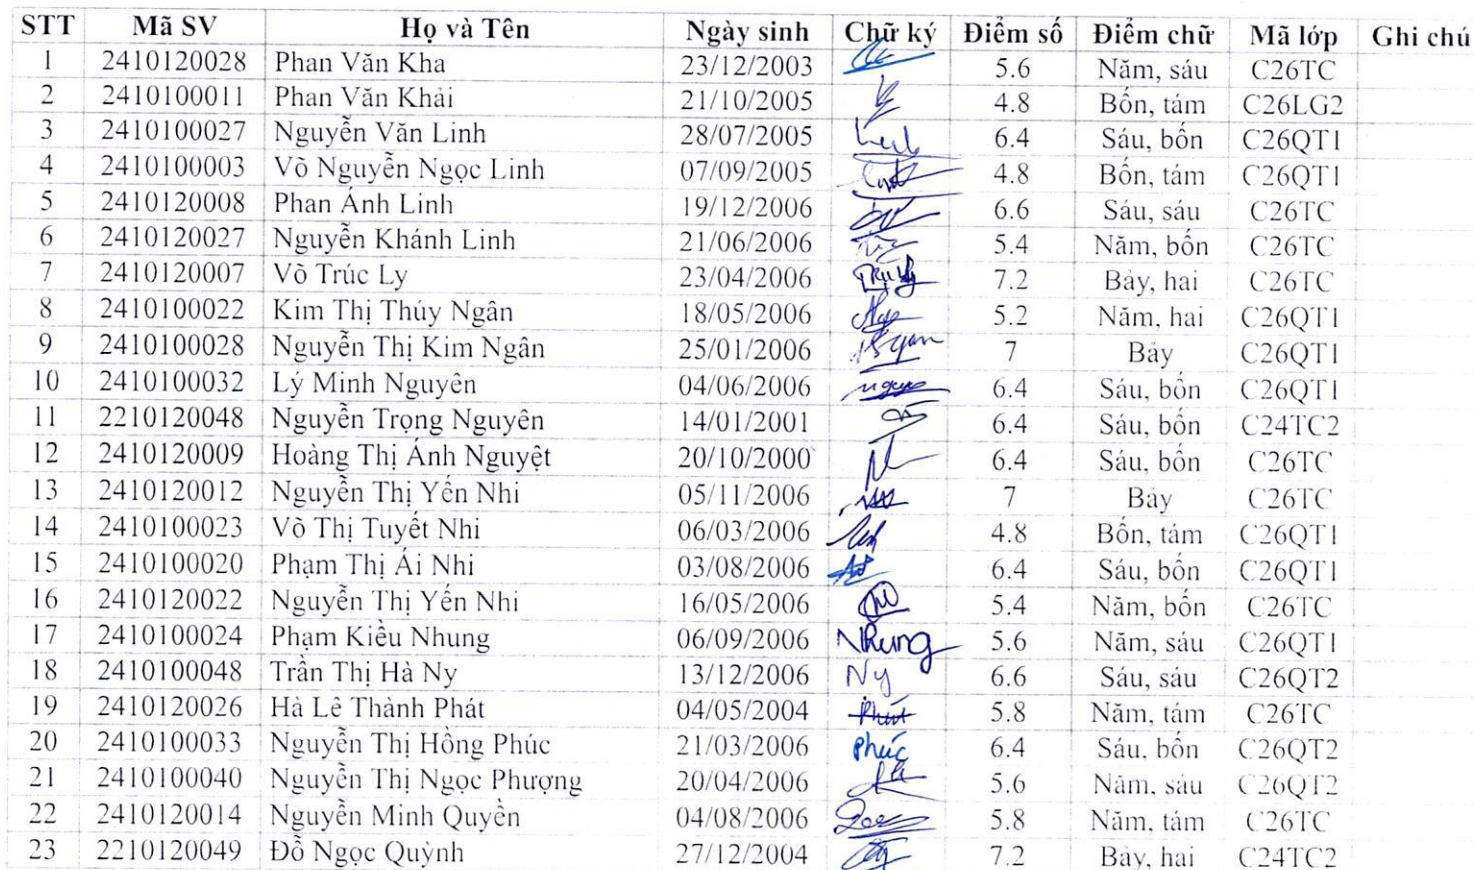 STT Mã SV Họ và Tên Ngày sinh Chữ ký Điểm số Điểm chữ Mã lớp Ghi chú
1 2410120028 Phan Văn Kha 23/12/2003 5.6 Năm, sáu C26TC
2 2410100011 Phan Văn Khải 21/10/2005 4.8 Bốn, tám C26LG2
3 2410100027 Nguyễn Văn Linh 28/07/2005 6.4 Sáu, bốn C26QT1
4 2410100003 Võ Nguyễn Ngọc Linh 07/09/2005 4.8 Bốn, tám C26QT1
5 2410120008 Phan Ánh Linh 19/12/2006 6.6 Sáu, sáu C26TC
6 2410120027 Nguyễn Khánh Linh 21/06/2006 5.4 Năm, bốn C26TC
7 2410120007 Võ Trúc Ly 23/04/2006 7.2 Bảy, hai C26TC
8 2410100022 Kim Thị Thúy Ngân 18/05/2006 5.2 Năm, hai C26QT1
9 2410100028 Nguyễn Thị Kim Ngân 25/01/2006 7 Bảy C26QT1
10 2410100032 Lý Minh Nguyên 04/06/2006 6.4 Sáu, bốn C26QT1
11 2210120048 Nguyễn Trọng Nguyên 14/01/2001 6.4 Sáu, bốn C24TC2
12 2410120009 Hoàng Thị Ánh Nguyệt 20/10/2000 6.4 Sáu, bốn C26TC
13 2410120012 Nguyễn Thị Yến Nhi 05/11/2006 7 Bảy C26TC
14 2410100023 Võ Thị Tuyết Nhi 06/03/2006 4.8 Bốn, tám C26QT1
15 2410100020 Phạm Thị Ái Nhi 03/08/2006 6.4 Sáu, bốn C26QT1
16 2410120022 Nguyễn Thị Yến Nhi 16/05/2006 5.4 Năm, bốn C26TC
17 2410100024 Phạm Kiều Nhung 06/09/2006 Nhung 5.6 Năm, sáu C26QT1
18 2410100048 Trần Thị Hà Ny 13/12/2006 Ny 6.6 Sáu, sáu C26QT2
19 2410120026 Hà Lê Thành Phát 04/05/2004 Phát 5.8 Năm, tám C26TC
20 2410100033 Nguyễn Thị Hồng Phúc 21/03/2006 Phúc 6.4 Sáu, bốn C26QT2
21 2410100040 Nguyễn Thị Ngọc Phượng 20/04/2006 5.6 Năm, sáu C26QT2
22 2410120014 Nguyễn Minh Quyền 04/08/2006 5.8 Năm, tám C26TC
23 2210120049 Đỗ Ngọc Quỳnh 27/12/2004 7.2 Bảy, hai C24TC2